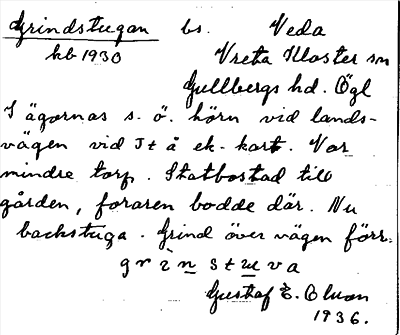 Grindstugan bs. Veda
kb 1930 Vreta Kloster sn
Gullbergs hd. Ögl
I ägornas s. ö. hörn vid lands-
vägen vid It å ek. kart. Var
mindre torp. Statbostad till
gården, foraren bodde där. Nu
backstuga. Grind över vägen förr.
grìnstuva
Gustaf E. Olson
1936.